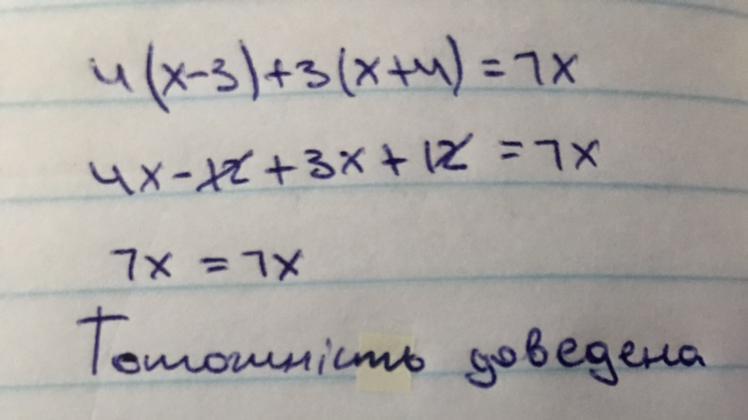 4(x-3)+3(x+4)=7x
4x-12+3x+12=7x
7x=7x
Тотожність доведена